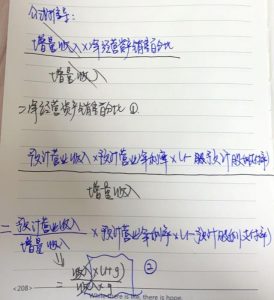 公式推导：
增量收入×净经营资产销售百分比
增量收入
=净经营资产销售百分比 ①
预计营业收入×预计营业净利率×(1-预计股利支付率)
增量收入
=预计营业收入×预计营业净利率×(1-预计股利支付率)
增量收入
=收入×(1+g) ②
收入×g
<208> Where there is life, there is hope.